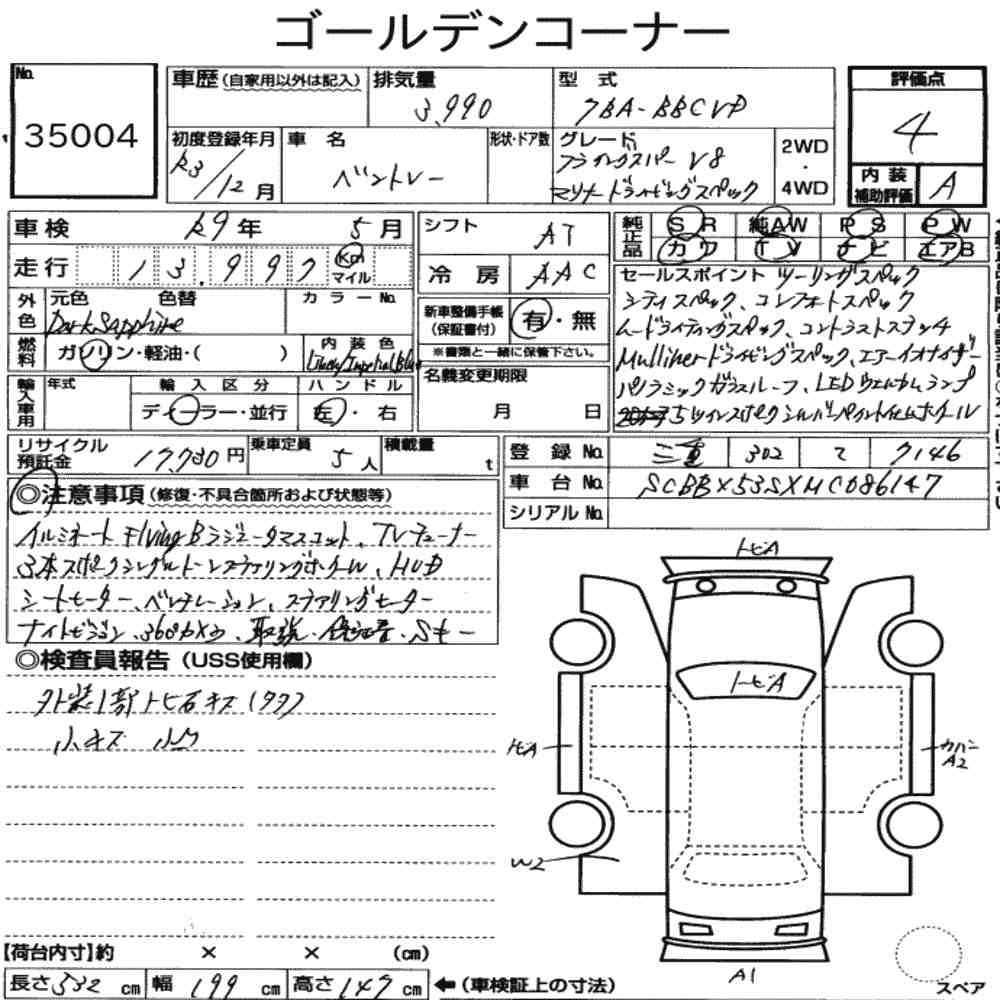 ゴールデンコーナー
No.
35004
車歴 (自家用以外は記入)
排気量
3,990
型 式
7BA-BBCVD
評価点
4
初度登録年月
R3/12 月
車 名
ベントレー
形状・ドア数
グレード
フライングスパー V8
マリナードライビングスペック
2WD
・
4WD
内 装
補助評価
A
車 検
R9 年 5 月
シフト
AT
純正品
S R
純AW
P S
P W
カワ
T V
ナビ
エアB
走 行
13,997
Km
マイル
冷 房
AAC
セールスポイント ツーリングスペック
シティスペック、コンフォートスペック
ムードライティングスペック、コントラストステッチ
Mullinerドライビングスペック、エアーイオナイザー
パノラミックガラスルーフ、LEDウェルカムランプ
5ツインスポークシルバーペイント仕上ホイール
外色
元色
色替
カラーNo.
Dark Sapphire
新車整備手帳
(保証書付)
有・無
※書類と一緒に保管下さい。
燃料
ガソリン・軽油・( )
内 装 色
Linen/Imperial Blue
名義変更期限
月 日
輸入車用
年式
輸 入 区 分
ディーラー・並行
ハ ン ド ル
左・右
リサイクル
預託金
17,730 円
乗車定員
5 人
積載量
t
登 録 No.
三重
302
て
7146
車 台 No.
SCBBX53SXMC086147
シリアル No.
◎注意事項 (修復・不具合箇所および状態等)
イルミネート Flying B ラジエーターマスコット、TVチューナー
3本スポークシングルトーンステアリングホイール、HUD
シートヒーター、ベンチレーション、ステアリングヒーター
ナイトビジョン、360°カメラ、取説・保証書・Sキー
◎検査員報告 (USS使用欄)
外装1部トビ石キズ(タッチ)
小キズ 小凹
トビA
トビA
トビA
カバー
A2
W2
A1
【荷台内寸】約 × × (cm)
長さ 532 cm
幅 199 cm
高さ 149 cm
←(車検証上の寸法)
スペア